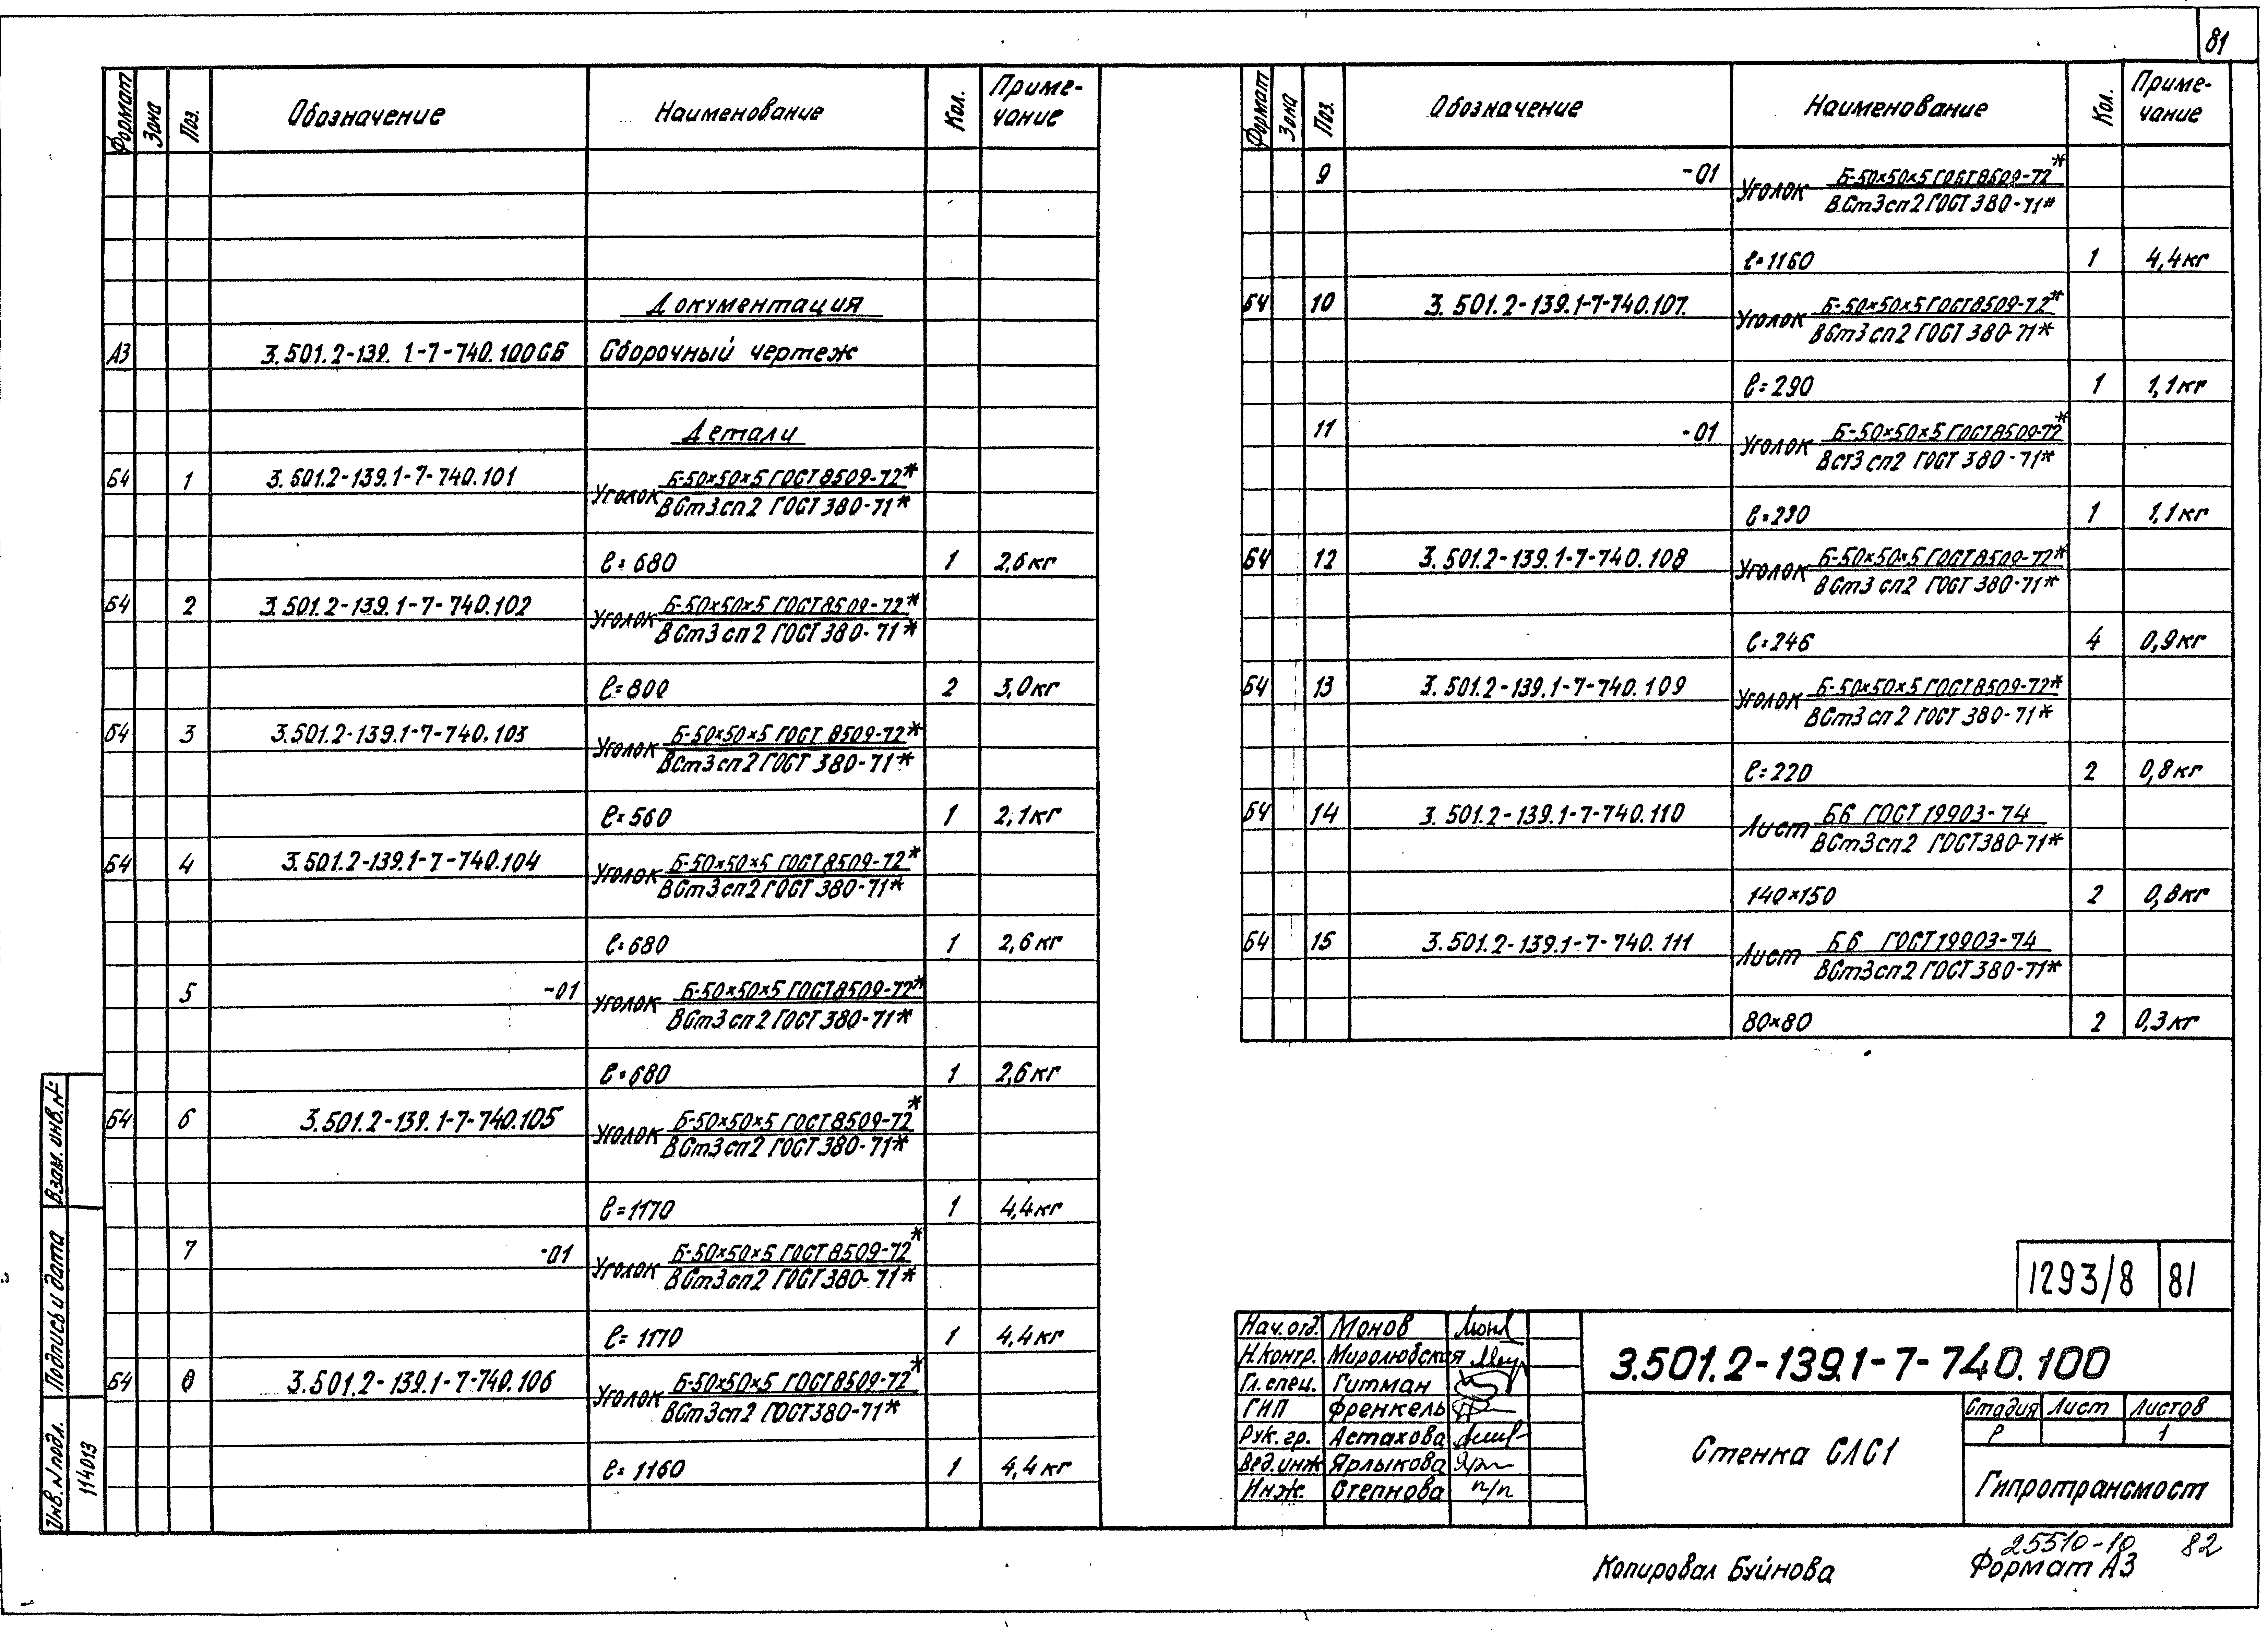 81
Формат Зона Поз. Обозначение Наименование Кол. Приме-
чание
Документация
А3 3.501.2-139.1-7-740.100СБ Сборочный чертеж
Детали
БЧ 1 3.501.2-139.1-7-740.101 Уголок Б-50×50×5 ГОСТ 8509-72*
ВСт3сп2 ГОСТ 380-71*
ℓ=680 1 2,6кг
БЧ 2 3.501.2-139.1-7-740.102 Уголок Б-50×50×5 ГОСТ 8509-72*
ВСт3сп2 ГОСТ 380-71*
ℓ=800 2 3,0кг
БЧ 3 3.501.2-139.1-7-740.103 Уголок Б-50×50×5 ГОСТ 8509-72*
ВСт3сп2 ГОСТ 380-71*
ℓ=560 1 2,1кг
БЧ 4 3.501.2-139.1-7-740.104 Уголок Б-50×50×5 ГОСТ 8509-72*
ВСт3сп2 ГОСТ 380-71*
ℓ=680 1 2,6кг
5 -01 Уголок Б-50×50×5 ГОСТ 8509-72*
ВСт3сп2 ГОСТ 380-71*
ℓ=680 1 2,6кг
БЧ 6 3.501.2-139.1-7-740.105 Уголок Б-50×50×5 ГОСТ 8509-72*
ВСт3сп2 ГОСТ 380-71*
ℓ=1170 1 4,4кг
7 -01 Уголок Б-50×50×5 ГОСТ 8509-72*
ВСт3сп2 ГОСТ 380-71*
ℓ=1170 1 4,4кг
БЧ 8 3.501.2-139.1-7-740.106 Уголок Б-50×50×5 ГОСТ 8509-72*
ВСт3сп2 ГОСТ 380-71*
ℓ=1160 1 4,4кг
Формат Зона Поз. Обозначение Наименование Кол. Приме-
чание
9 -01 Уголок Б-50×50×5 ГОСТ 8509-72*
ВСт3сп2 ГОСТ 380-71*
ℓ=1160 1 4,4кг
БЧ 10 3.501.2-139.1-7-740.107. Уголок Б-50×50×5 ГОСТ 8509-72*
ВСт3сп2 ГОСТ 380-71*
ℓ=290 1 1,1кг
11 -01 Уголок Б-50×50×5 ГОСТ 8509-72*
ВСт3сп2 ГОСТ 380-71*
ℓ=290 1 1,1кг
БЧ 12 3.501.2-139.1-7-740.108 Уголок Б-50×50×5 ГОСТ 8509-72*
ВСт3сп2 ГОСТ 380-71*
ℓ=246 4 0,9кг
БЧ 13 3.501.2-139.1-7-740.109 Уголок Б-50×50×5 ГОСТ 8509-72*
ВСт3сп2 ГОСТ 380-71*
ℓ=220 2 0,8кг
БЧ 14 3.501.2-139.1-7-740.110 Лист Б6 ГОСТ 19903-74
ВСт3сп2 ГОСТ 380-71*
140×150 2 0,8кг
БЧ 15 3.501.2-139.1-7-740.111 Лист Б6 ГОСТ 19903-74
ВСт3сп2 ГОСТ 380-71*
80×80 2 0,3кг
Взам. инв. №
Подпись и дата
Инв. № подл.
11403
1293/8 81
Нач. отд. Монов
Н.контр. Миролюбская
Гл. спец. Гитман
ГИП Френкель
Рук. гр. Астахова
Вед.инж Ярлыкова
Инж. Степнова п/п
3.501.2-139.1-7-740.100
Стенка СЛС1
Стадия Лист Листов
Р 1
Гипротрансмост
25510-10 82
Копировал Буйнова Формат А3